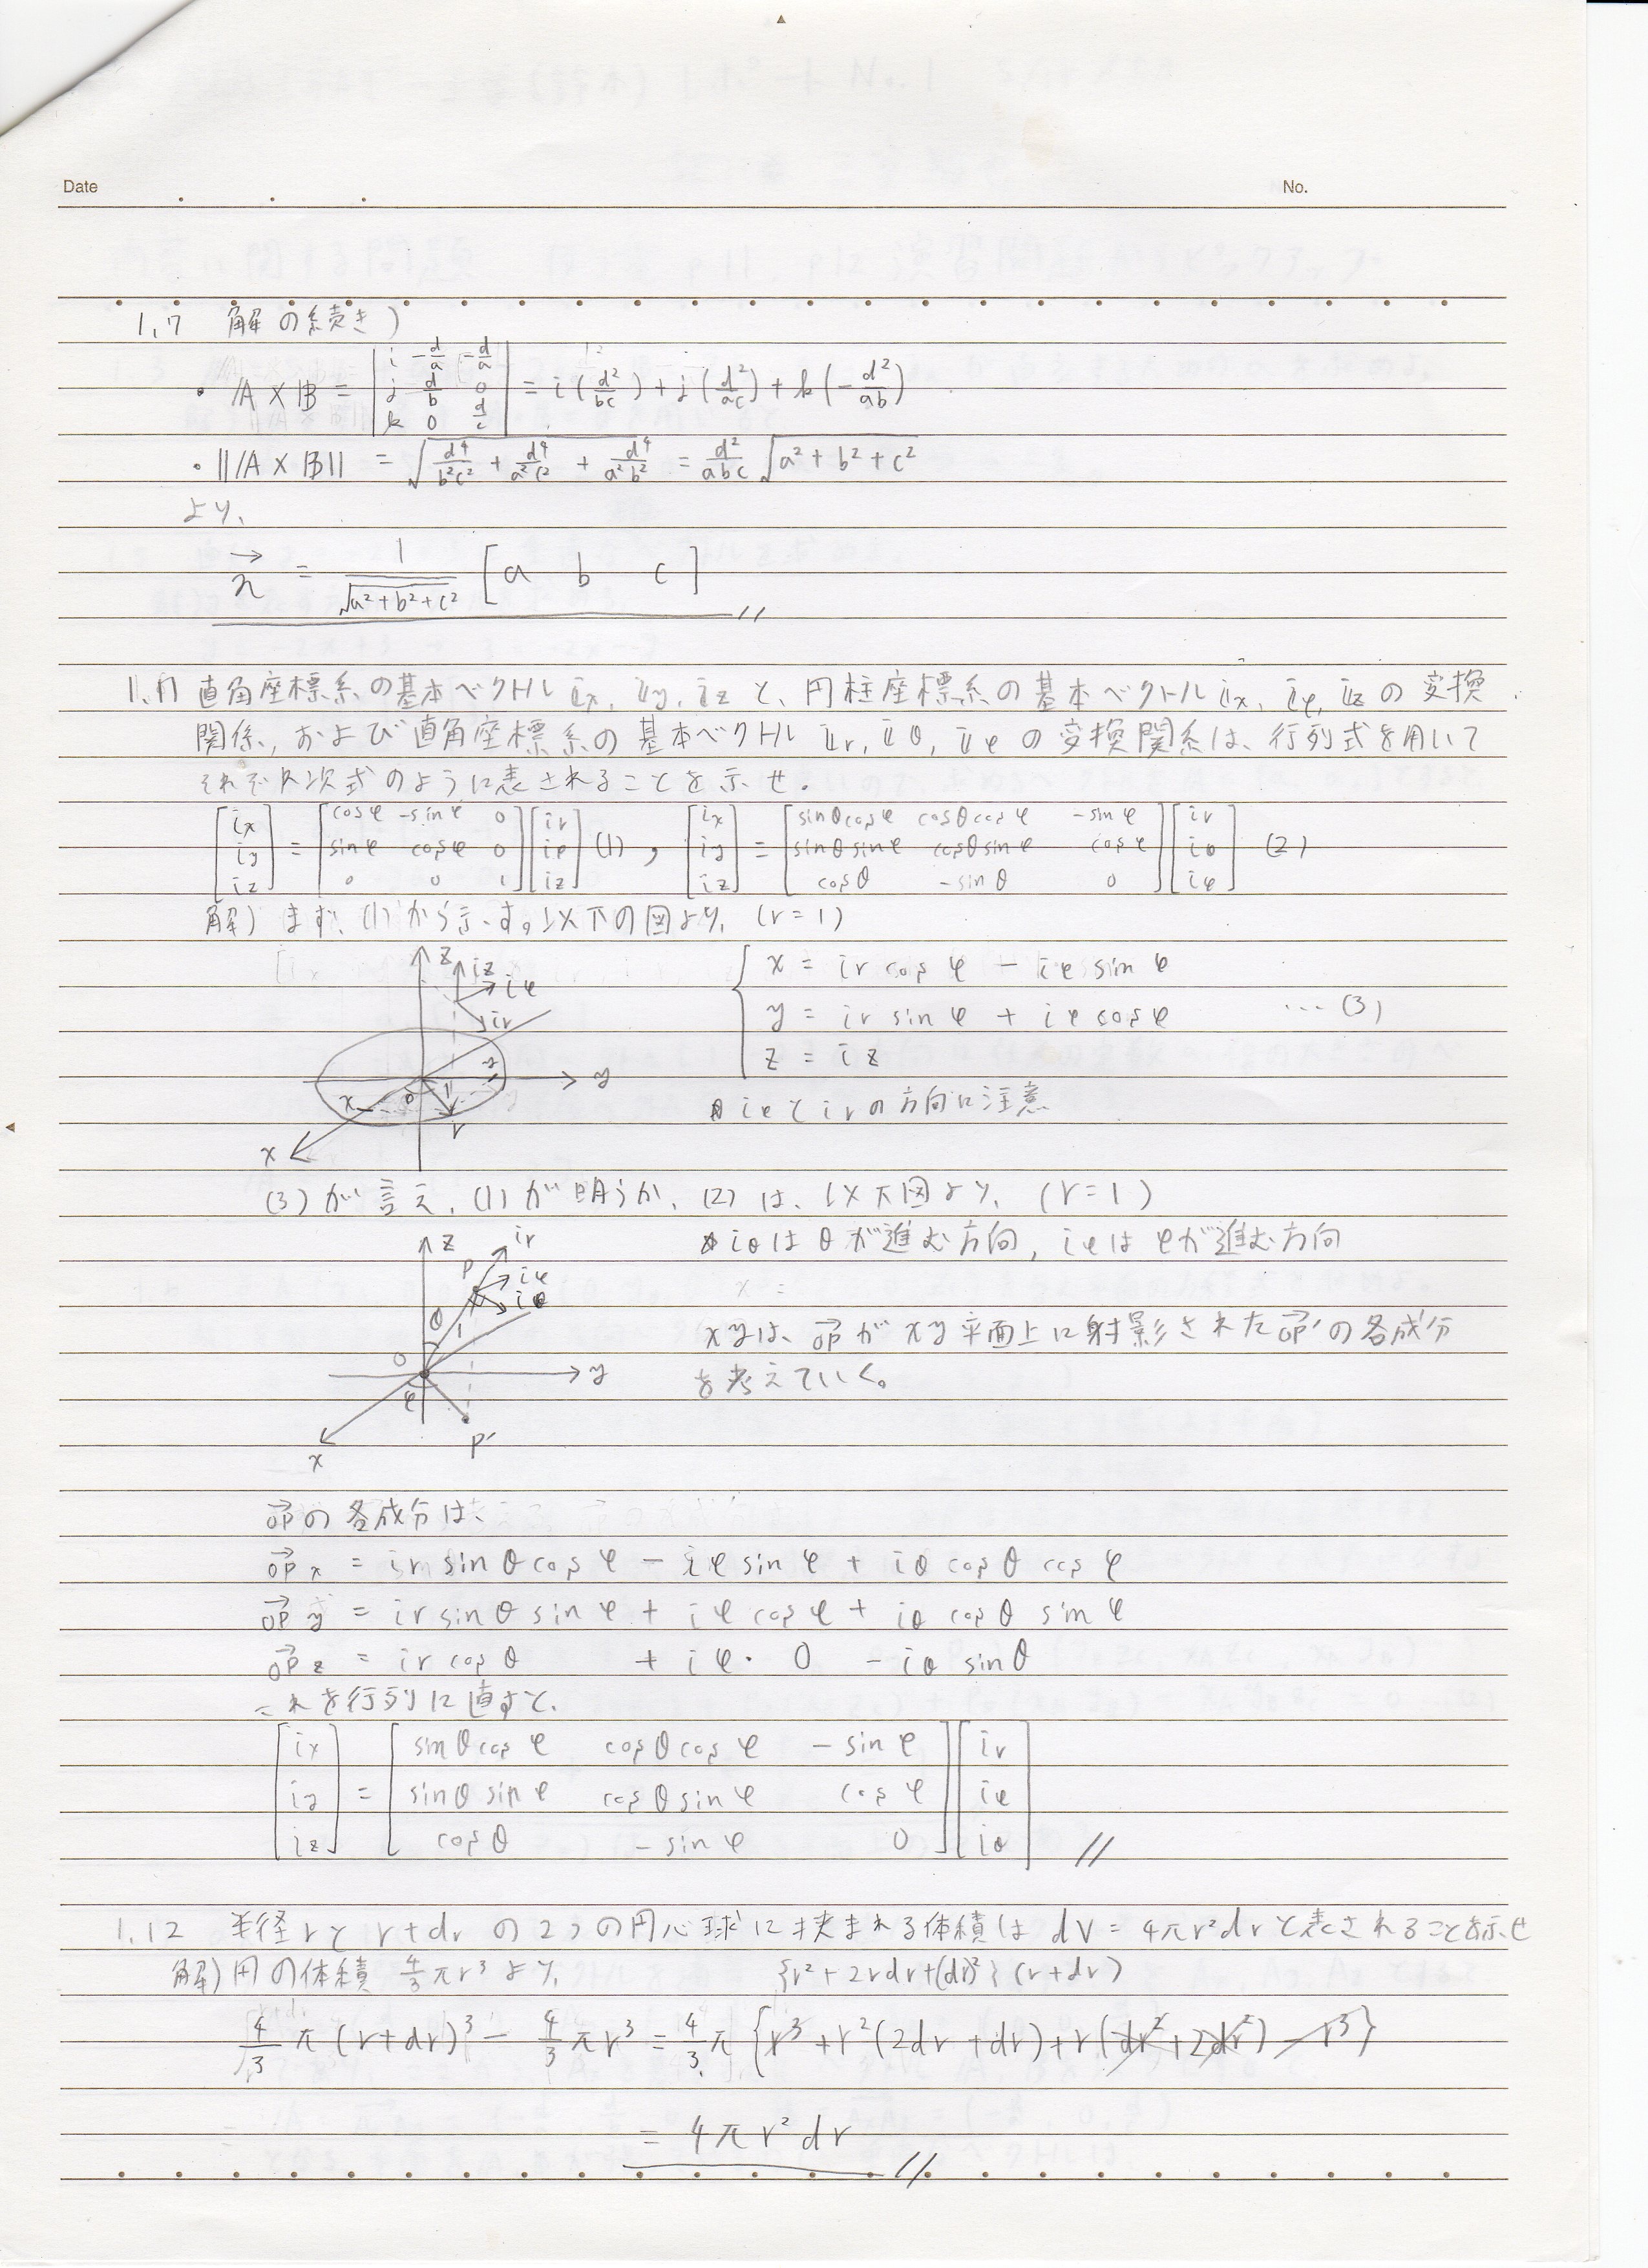 Date
No.
1.7 解の続き)
・ A × B = | i -d/a -d/a ; j d/b 0 ; k 0 d/c | = i (d²/bc) + j (d²/ac) + k (-d²/ab)
・ ||A × B|| = √(d⁴/b²c² + d⁴/a²c² + d⁴/a²b²) = d²/abc √(a² + b² + c²)
より、
n→ = 1/√(a²+b²+c²) [a b c] //
1.11 直角座標系の基本ベクトル ix, iy, iz と、円柱座標系の基本ベクトル ix, iφ, iz の変換
関係, および直角座標系の基本ベクトル ir, iθ, iφ の変換関係は、行列式を用いて
それぞれ次式のように表されることを示せ.
[ix ; iy ; iz] = [cosφ -sinφ 0 ; sinφ cosφ 0 ; 0 0 1][ir ; iφ ; iz] (1) , [ix ; iy ; iz] = [sinθcosφ cosθcosφ -sinφ ; sinθsinφ cosθsinφ cosφ ; cosθ -sinθ 0][ir ; iθ ; iφ] (2)
解) まず、(1)から示す。以下の図より, (r=1)
z iz iφ ir
y
x
o
r
y
x
x = ir cosφ - iφ sinφ
y = ir sinφ + iφ cosφ ... (3)
z = iz
☆ iφとirの方向に注意
(3)が言え, (1)が明らか, (2)は、以下図より, (r=1)
☆ iθは θが進む方向, iφはφが進む方向
z ir
P iφ
iθ
θ 1
o
y
φ
x
P'
xyは、OP→ が xy平面上に射影された OP'→ の各成分
を考えていく。
OP→の各成分は、
OP→x = ir sinθcosφ - iφ sinφ + iθ cosθ cosφ
OP→y = ir sinθ sinφ + iφ cosφ + iθ cosθ sinφ
OP→z = ir cosθ + iφ・0 - iθ sinθ
これを行列に直すと、
[ix ; iy ; iz] = [sinθcosφ cosθcosφ -sinφ ; sinθsinφ cosθsinφ cosφ ; cosθ -sinφ 0][ir ; iφ ; iθ] //
1.12 半径rと r+dr の2つの円心球に挟まれる体積は dV = 4πr²dr と表されることを示せ
解) 円の体積 4/3 πr³ より, {r² + 2rdr + (dr)²} (r+dr)
4/3 π (r+dr)³ - 4/3 πr³ = 4/3 π {r³ + r²(2dr + dr) + r(dr² + 2dr²) - r³}
= 4πr²dr //